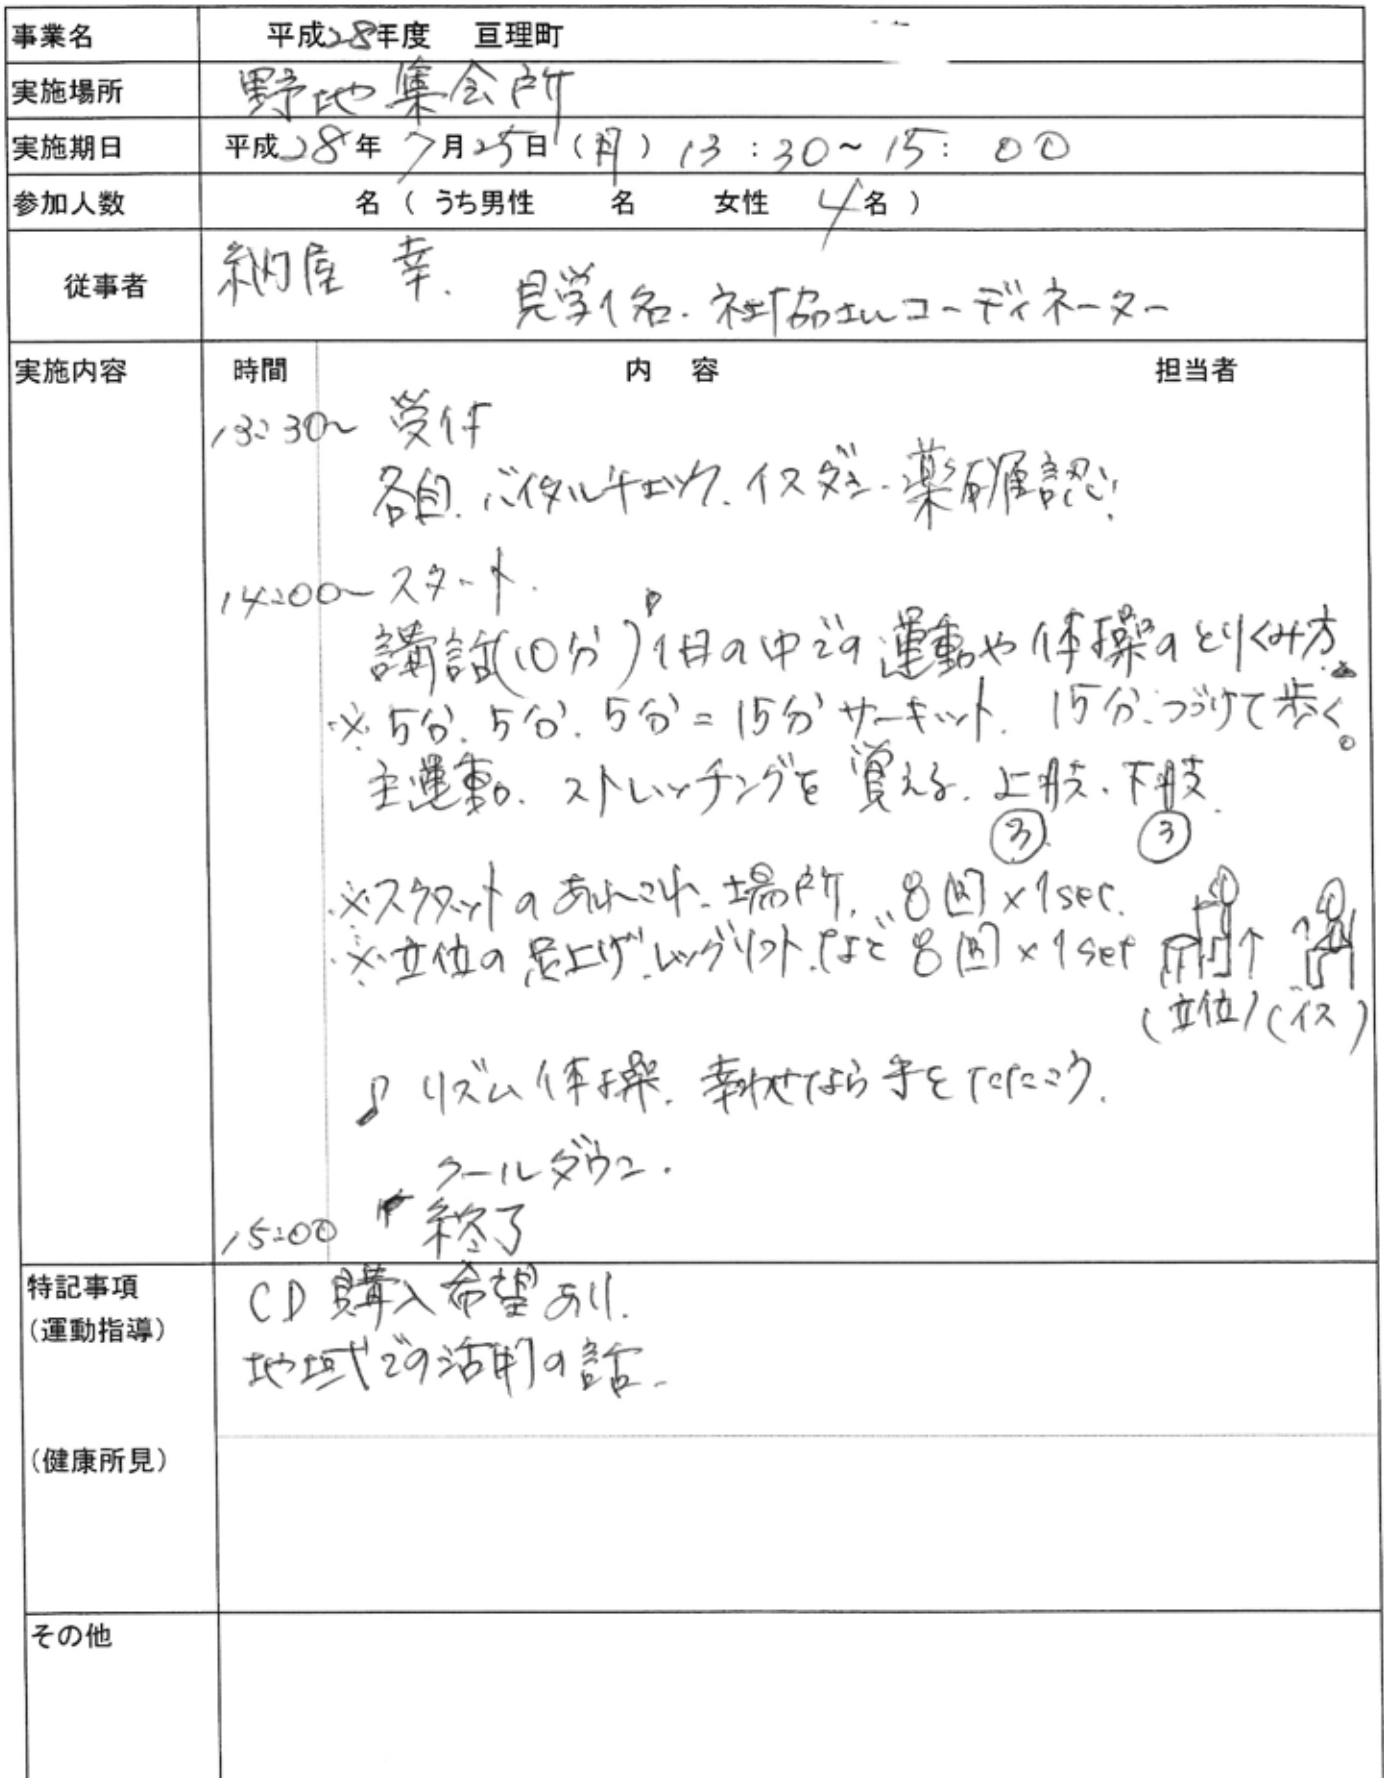 事業名 平成28年度 亘理町
実施場所 野地集会所
実施期日 平成28年 7月25日（月）13：30～15：00
参加人数 名（うち男性 名 女性 4名）
従事者 納屋 幸.
見学1名. 社協 コーディネーター
実施内容 時間 内 容 担当者
13:30～ 受付
各自. バイタルチェック. イス 薬 確認!
14:00～ スタート.
講話(10分) 1日の中での運動や体操のとりくみ方.
※ 5分. 5分. 5分 = 15分 サーキット. 15分. つづけて歩く。
主運動. ストレッチングを覚える. 上肢. 下肢.
③ ③
※スクワットのあれこれ. 場所. 8回×1set.
※立位の足上げ. レッグリフト. など 8回×1set
(立位) (イス)
♪ リズム体操. 幸わせなら手をたたこう.
クールダウン.
15:00 終了
特記事項 CD購入希望あり.
（運動指導） 地域での活動の話.
（健康所見）
その他